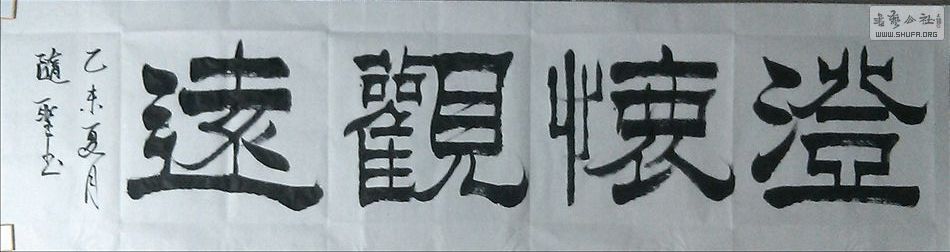 澄懷觀遠
乙未夏月
隨聖书
書藝公社
WWW.SHUFA.ORG